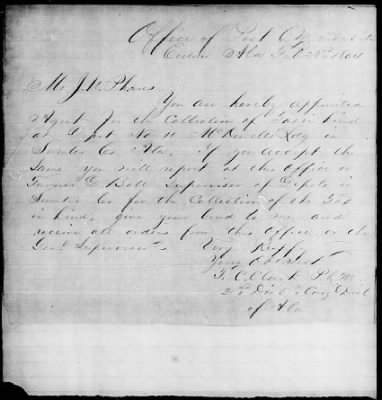 Office of Post Q. M.
Ala Feb 22d 1864
Mr J. W.
You are hereby appointed
Agent for the Collection of Tax in Kind
at Depot No 11 Ldg in
Sumter Co Ala. If you accept the
same you will report at this office or
Turner C. Bell Supervisor of Depots in
Sumter Co for the Collection of the Tax
in kind, give your bond to me and
receive all orders from this office or the
Genl Supervisor
Very Respy
Your Obt Servt
T. C. Clark P. Q. M.
2nd Div 5th Cong Dist
of Ala